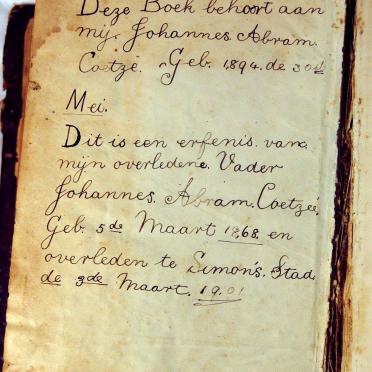 Deze Boek behoort aan
mij. Johannes. Abram.
Coetzé. Geb. 1894. de 30ste
Mei.
Dit is een erfenis. van.
mijn overledene. Vader
Johannes. Abram. Coetzeé.
Geb. 5de Maart 1868 en
overleden te Simon's. Stad.
de 3de Maart. 1901